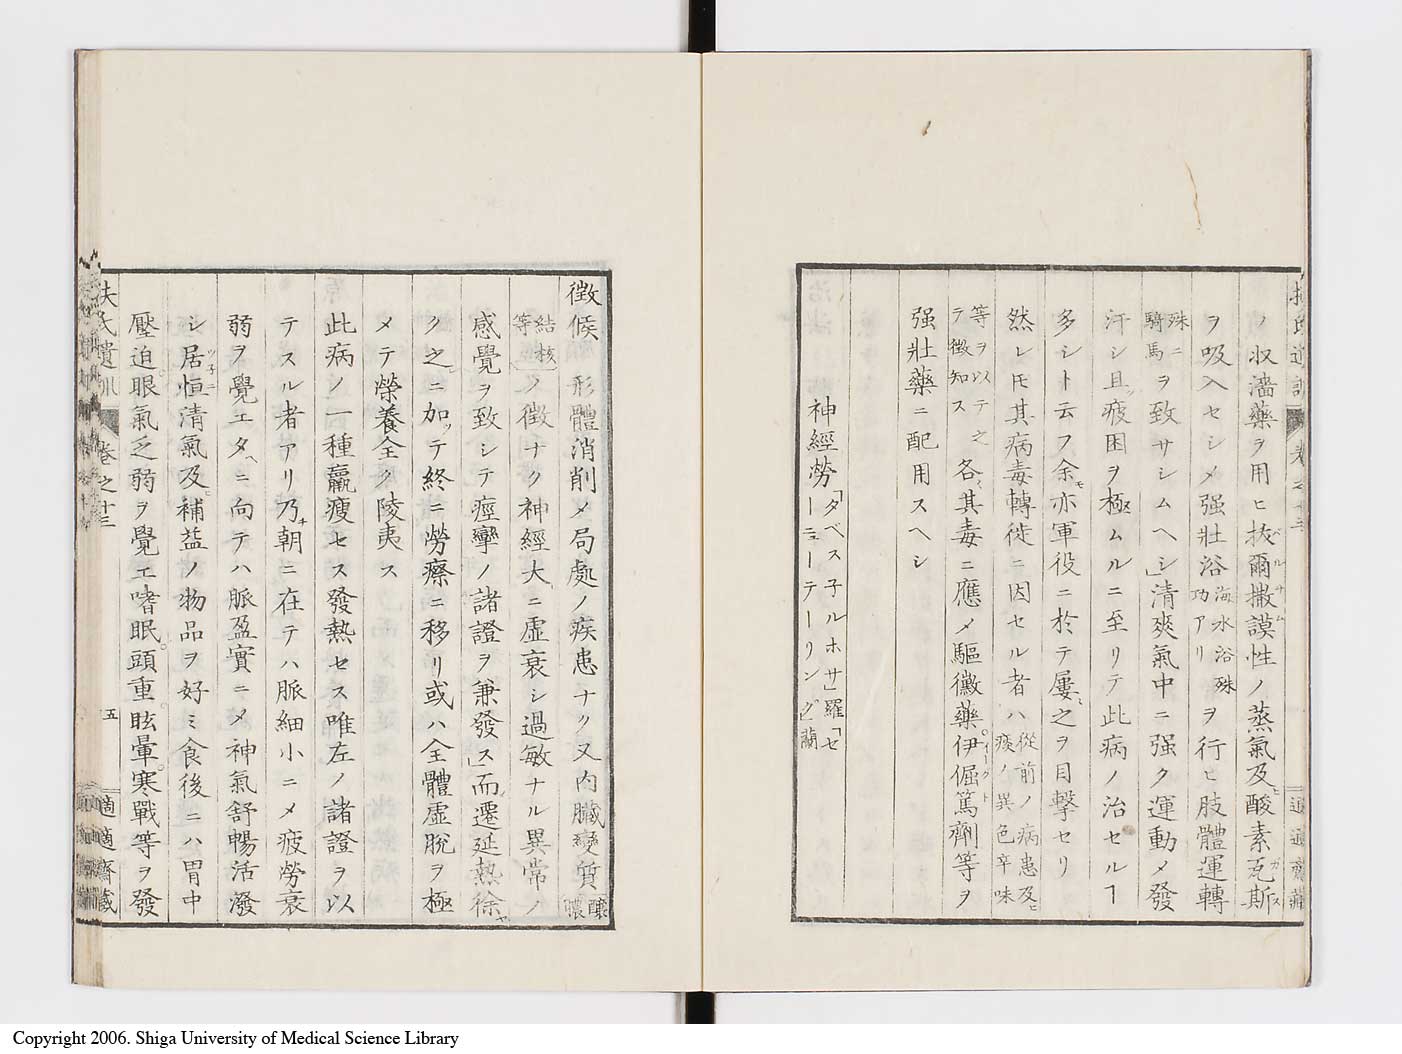 ノ収濇藥ヲ用ヒ抜爾撒謨性ノ蒸氣及酸素瓦斯
ヲ吸入セシメ强壯浴海水浴殊功アリヲ行ヒ肢體運轉
殊ニ騎馬ヲ致サシムヘシ」清爽氣中ニ强ク運動メ發
汗シ且疲困ヲ極ムルニ至リテ此病ノ治セルヿ
多シト云フ余亦軍役ニ於テ屢之ヲ目擊セリ
然レモ其病毒轉徙ニ因セル者ハ從前ノ病患及痰ノ異色辛味
等ヲ以テ之テ徴知ス各其毒ニ應メ驅黴藥伊倔篤劑等ヲ
强壯藥ニ配用スヘシ
神經勞「タベス子ルホサ」羅「セーニューテーリング」蘭
徴候 形體消削メ局處ノ疾患ナク又内臟變質釀膿
結核等ノ徴ナク神經大ニ虛衰シ過敏ナル異常ノ
感覺ヲ致シテ痙攣ノ諸證ヲ兼發ス」而遷延熱徐
ク之ニ加テ終ニ勞瘵ニ移リ或ハ全體虛脫ヲ極
メテ榮養全ク陵夷ス
此病ノ一種羸瘦セス發熱セス唯左ノ諸證ヲ以
テスル者アリ乃朝ニ在テハ脈細小ニメ疲勞衰
弱ヲ覺エタニ向テハ脈盈實ニメ神氣舒暢活潑
シ居恒清氣及補益ノ物品ヲ好ミ食後ニハ胃中
壓迫眼氣乏弱ヲ覺エ嗜眠頭重眩暈寒戰等ヲ發
扶氏遺訓 卷之十三 五 適適齋藏
Copyright 2006. Shiga University of Medical Science Library